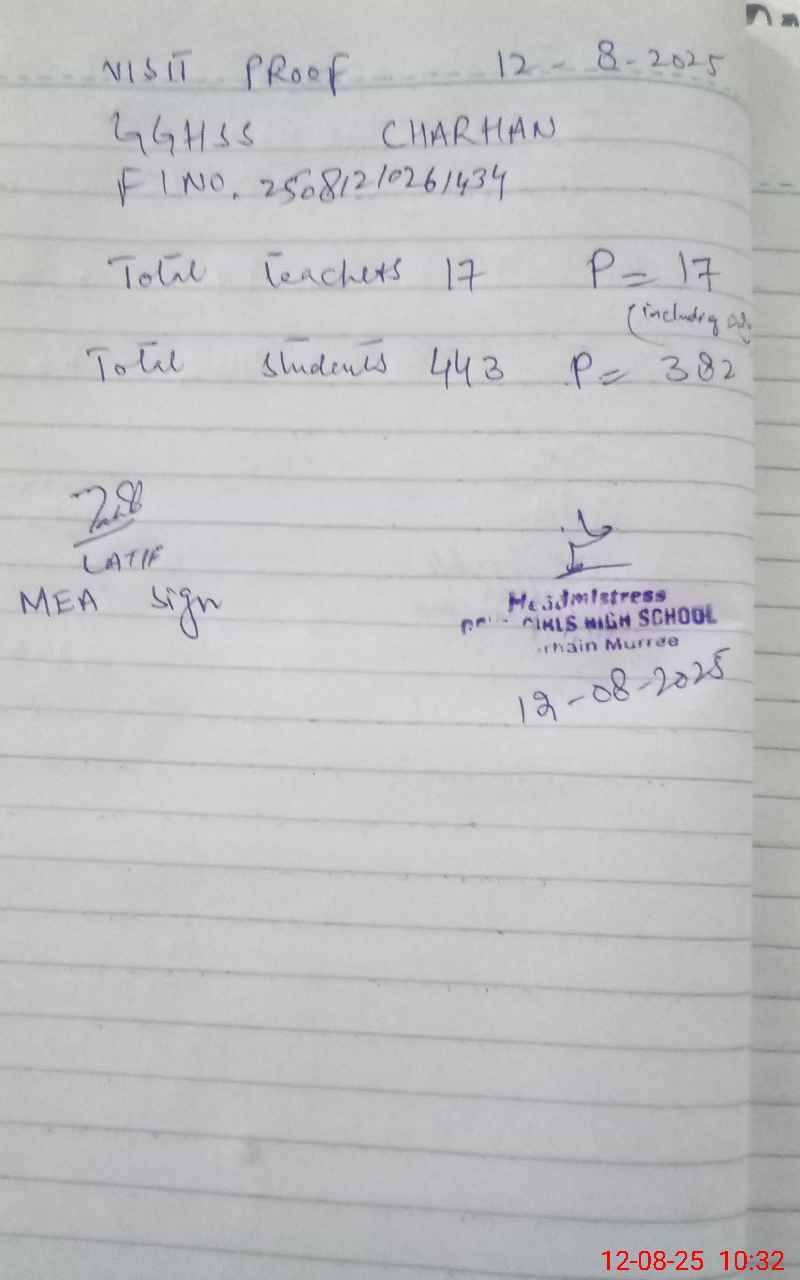 VISIT PROOF 12 - 8 - 2025
GGHSS CHARHAN
F I NO. 25081210261434
Total teachers 17 P = 17
(including
Total students 443 P = 382
LATIF
MEA sign
Headmistress
GIRLS HIGH SCHOOL
rhain Murree
12-08-2025
12-08-25 10:32